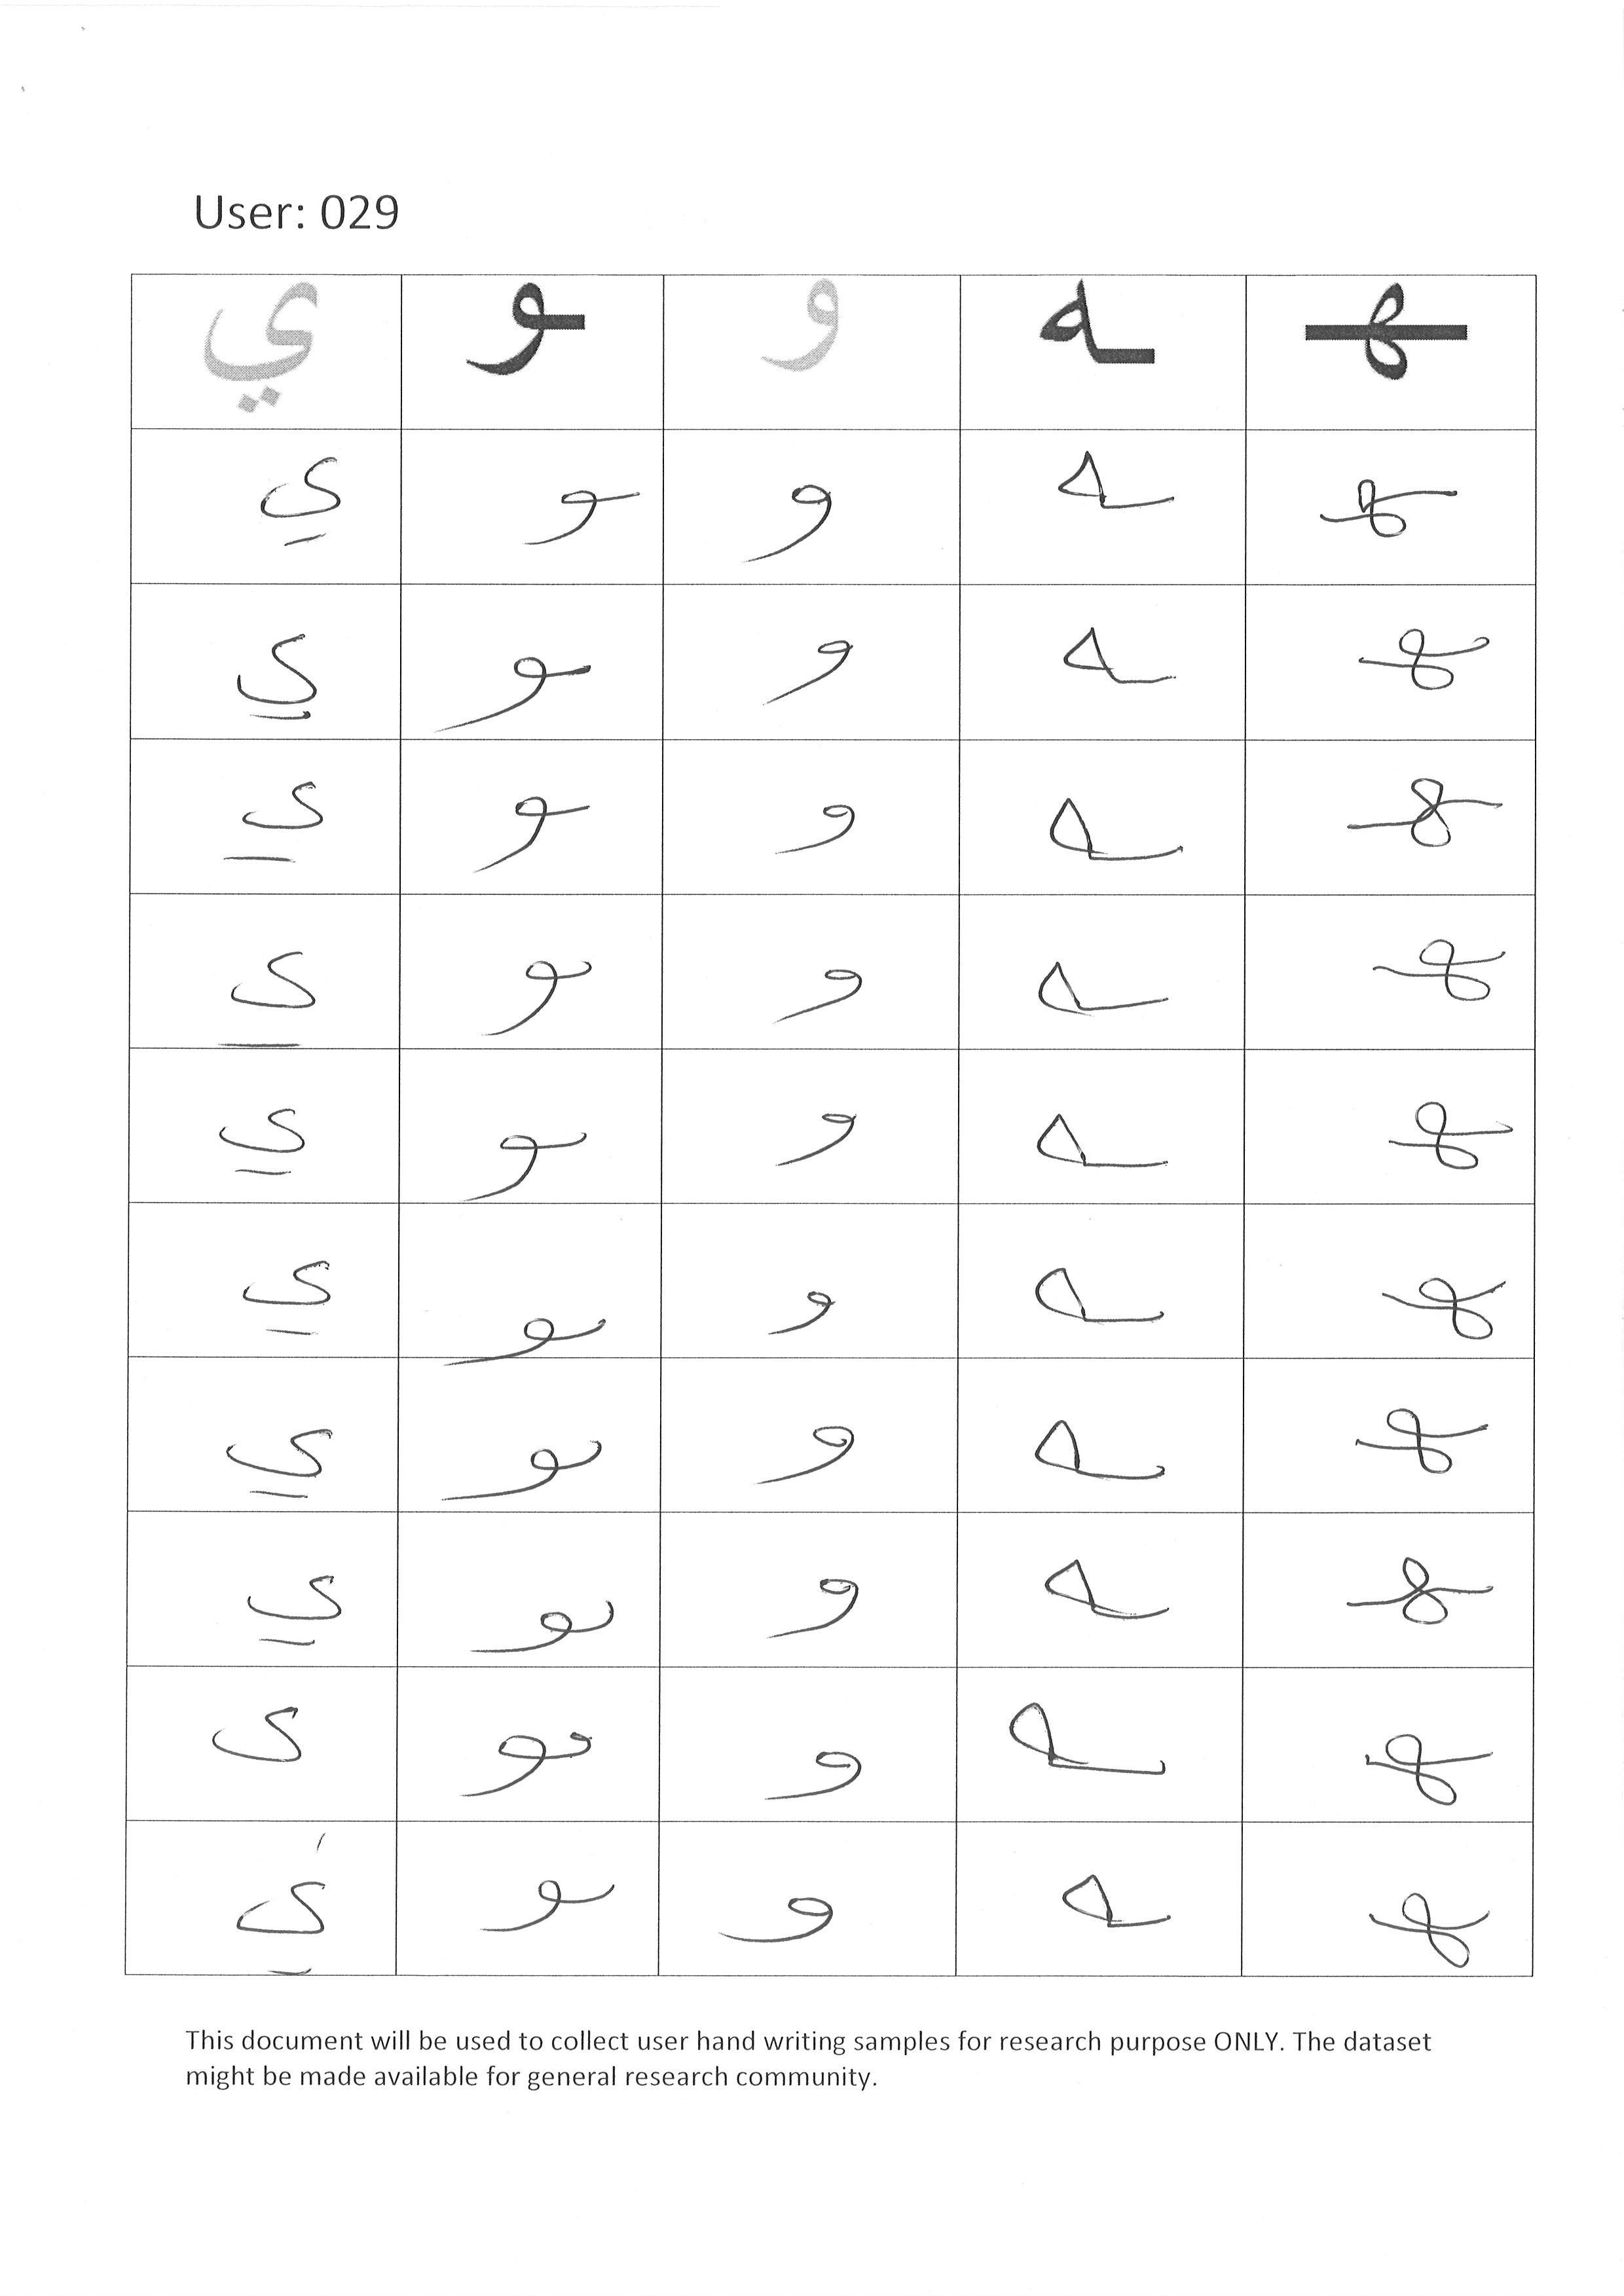 User: 029
ي ـو و ـه ـهـ
ي ـو و ـه ـهـ
ي ـو و ـه ـهـ
ي ـو و ـه ـهـ
ي ـو و ـه ـهـ
ي ـو و ـه ـهـ
ي ـو و ـه ـهـ
ي ـو و ـه ـهـ
ي ـو و ـه ـهـ
ى ـو و ـه ـهـ
ي ـو و ـه ـهـ
This document will be used to collect user hand writing samples for research purpose ONLY. The dataset
might be made available for general research community.